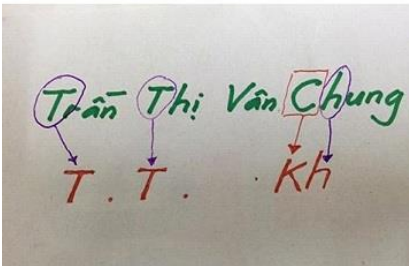 Trần Thị Vân Chung
T . T . . Kh